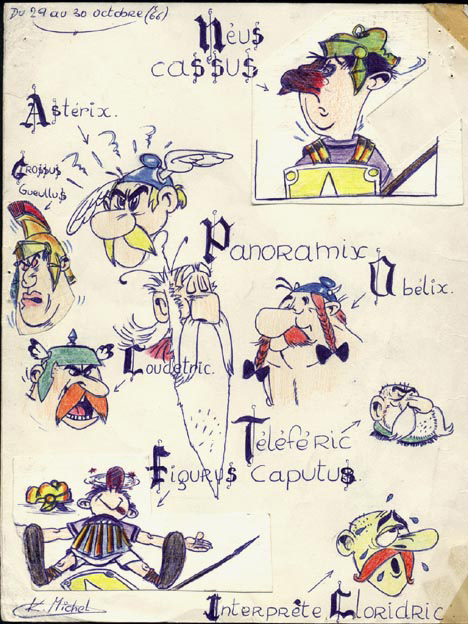 Du 29 au 30 octobre (66)
Néus
ca$$us
Astérix.
Grossus
Gueullus
Panoramix
Obélix.
Coudetric.
Téléféric
Figurus Caputus.
K. Michel
Interprète Cloridric